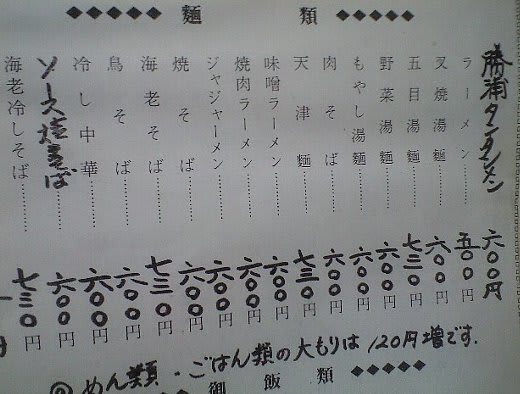 ◆◆◆◆◆ 麺類 ◆◆◆◆◆
勝浦タンタンメン 六〇〇円
ラーメン………… 五〇〇円
叉焼湯麺………… 六〇〇円
五目湯麺………… 七三〇円
野菜湯麺………… 六〇〇円
もやし湯麺………… 六〇〇円
肉そば………… 六〇〇円
天津麺………… 七三〇円
味噌ラーメン………… 六〇〇円
焼肉ラーメン………… 六〇〇円
ジャジャーメン………… 六〇〇円
焼そば………… 六〇〇円
海老そば………… 七三〇円
鳥そば………… 六〇〇円
冷し中華………… 六〇〇円
ソース焼そば………… 六〇〇円
海老冷しそば………… 七三〇円
◎めん類・ごはん類の大もりは120円増です.
御飯類 ◆◆◆◆◆